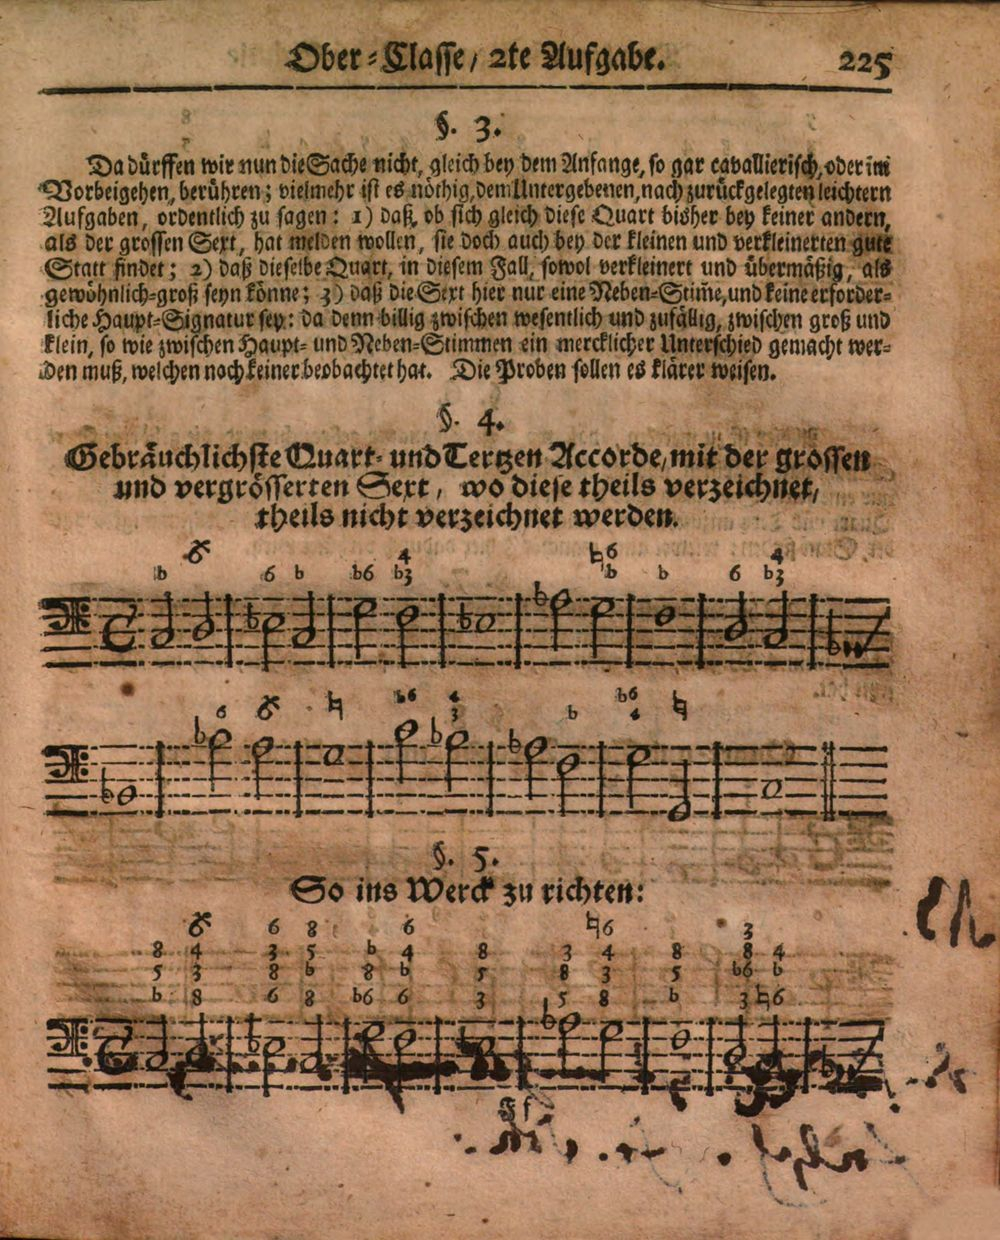 Ober-Classe, 2te Aufgabe. 225
§. 3.
Da dürffen wir nun die Sache nicht, gleich bey dem Anfange, so gar cavallierisch, oder im
Vorbeigehen, berühren; vielmehr ist es nöthig, dem Untergebenen, nach zurückgelegten leichtern
Aufgaben, ordentlich zu sagen: 1) daß, ob sich gleich diese Quart bisher bey keiner andern,
als der grossen Sext, hat melden wollen, sie doch auch bey der kleinen und verkleinerten gute
Statt findet; 2) daß dieselbe Quart, in diesem Fall, sowol verkleinert und übermäßig, als
gewöhnlich-groß seyn könne; 3) daß die Sext hier nur eine Neben-Stim̃e, und keine erforder-
liche Haupt-Signatur sey: da denn billig zwischen wesentlich und zufällig, zwischen groß und
klein, so wie zwischen Haupt- und Neben-Stimmen ein mercklicher Unterschied gemacht wer-
den muß, welchen noch keiner beobachtet hat. Die Proben sollen es klärer weisen.
§. 4.
Gebräuchlichste Quart- und Tertzen Accorde, mit der grossen
und vergrösserten Sext, wo diese theils verzeichnet,
theils nicht verzeichnet werden.
6 4 ♮6 4
b 6 b b6 b3 b b 6 b3
6 6 ♮ b6 4 b6 ♮
3 b 4
§. 5.
So ins Werck zu richten:
6 6 8 6 ♮6 3
8 4 3 5 b 4 8 3 4 8 8 4
5 3 8 b 8 b 5 8 3 5 b6 b
b 8 6 8 b6 6 3 5 8 b 3 ♮6